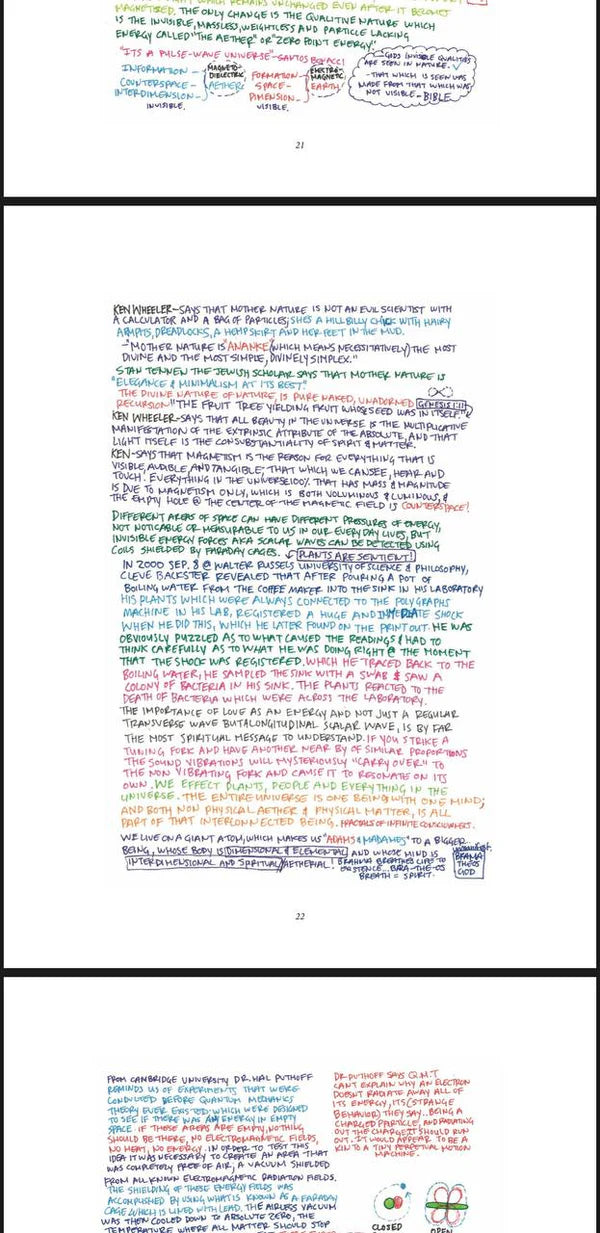 MAGNETISED. THE ONLY CHANGE IS THE QUALITIVE NATURE WHICH
IS THE INVISIBLE, MASSLESS, WEIGHTLESS AND PARTICLE LACKING
ENERGY CALLED "THE AETHER" OR "ZERO POINT ENERGY".
"ITS A PULSE-WAVE UNIVERSE"-SANTOS BONACCI
INFORMATION-
COUNTERSPACE-
INTERDIMENSION-
INVISIBLE.
MAGNETO-
DIELECTRIC
AETHER
FORMATION-
SPACE-
DIMENSION-
VISIBLE.
ELECTRO-
MAGNETIC
EARTH
-GODS INVISIBLE QUALITIES
ARE SEEN IN NATURE.
-THAT WHICH IS SEEN WAS
MADE FROM THAT WHICH WAS
NOT VISIBLE-BIBLE
21
KEN WHEELER-SAYS THAT MOTHER NATURE IS NOT AN EVIL SCIENTIST WITH
A CALCULATOR AND A BAG OF PARTICLES; SHES A HILLBILLY CHICK WITH HAIRY
ARMPITS, DREADLOCKS, A HEMP SKIRT AND HER FEET IN THE MUD.
-"MOTHER NATURE IS "ANANKE" (WHICH MEANS NECESSITATIVELY) THE MOST
DIVINE AND THE MOST SIMPLE, DIVINELY SIMPLEX."
STAN TENNEN THE JEWISH SCHOLAR SAYS THAT MOTHER NATURE IS
"ELEGANCE & MINIMALISM AT ITS BEST."
THE DIVINE NATURE OF NATURE, IS PURE NAKED, UNADORNED
RECURSION "THE FRUIT TREE YIELDING FRUIT WHOSE SEED WAS IN ITSELF"
GENESIS 1:11
KEN WHEELER-SAYS THAT ALL BEAUTY IN THE UNIVERSE IS THE MULTIPLICATIVE
MANIFESTATION OF THE EXTRINSIC ATTRIBUTE OF THE ABSOLUTE, AND THAT
LIGHT ITSELF IS THE CONSUBSTANTIALITY OF SPIRIT & MATTER.
KEN-SAYS THAT MAGNETISM IS THE REASON FOR EVERYTHING THAT IS
VISIBLE, AUDIBLE, AND TANGIBLE; THAT WHICH WE CAN SEE, HEAR AND
TOUCH. EVERYTHING IN THE UNIVERSE 100%. THAT HAS MASS & MAGNITUDE
IS DUE TO MAGNETISM ONLY, WHICH IS BOTH VOLUMINOUS & LUMINOUS, &
THE EMPTY HOLE @ THE CENTER OF THE MAGNETIC FIELD IS COUNTERSPACE!
DIFFERENT AREAS OF SPACE CAN HAVE DIFFERENT PRESSURES OF ENERGY,
NOT NOTICABLE OR MEASURABLE TO US IN OUR EVERY DAY LIVES, BUT
INVISIBLE ENERGY FORCES AKA SCALAR WAVES CAN BE DETECTED USING
COILS SHIELDED BY FARADAY CAGES. PLANTS ARE SENTIENT!
IN 2000 SEP. 8 @ WALTER RUSSELS UNIVERSITY OF SCIENCE & PHILOSOPHY,
CLEVE BACKSTER REVEALED THAT AFTER POURING A POT OF
BOILING WATER FROM THE COFFEE MAKER INTO THE SINK IN HIS LABORATORY
HIS PLANTS WHICH WERE ALWAYS CONNECTED TO THE POLYGRAPHS
MACHINE IN HIS LAB, REGISTERED A HUGE AND IMMEDIATE SHOCK
WHEN HE DID THIS, WHICH HE LATER FOUND ON THE PRINT OUT. HE WAS
OBVIOUSLY PUZZLED AS TO WHAT CAUSED THE READINGS & HAD TO
THINK CAREFULLY AS TO WHAT HE WAS DOING RIGHT @ THE MOMENT
THAT THE SHOCK WAS REGISTERED. WHICH HE TRACED BACK TO THE
BOILING WATER; HE SAMPLED THE SINK WITH A SWAB & SAW A
COLONY OF BACTERIA IN HIS SINK. THE PLANTS REACTED TO THE
DEATH OF BACTERIA WHICH WERE ACROSS THE LABORATORY.
THE IMPORTANCE OF LOVE AS AN ENERGY AND NOT JUST A REGULAR
TRANSVERSE WAVE BUT A LONGITUDINAL SCALAR WAVE, IS BY FAR
THE MOST SPIRITUAL MESSAGE TO UNDERSTAND. IF YOU STRIKE A
TUNING FORK AND HAVE ANOTHER NEAR BY OF SIMILAR PROPORTIONS
THE SOUND VIBRATIONS WILL MYSTERIOUSLY "CARRY OVER" TO
THE NON VIBRATING FORK AND CAUSE IT TO RESONATE ON ITS
OWN. WE EFFECT PLANTS, PEOPLE AND EVERYTHING IN THE
UNIVERSE. THE ENTIRE UNIVERSE IS ONE BEING WITH ONE MIND;
AND BOTH NON PHYSICAL AETHER & PHYSICAL MATTER, IS ALL
PART OF THAT INTERCONNECTED BEING. FRACTALS OF INFINITE CONSCIOUSNESS.
WE LIVE ON A GIANT ATOM, WHICH MAKES US "ADAMS & MADAMES" TO A BIGGER
BEING, WHOSE BODY IS DIMENSIONAL & ELEMENTAL AND WHOSE MIND IS
INTERDIMENSIONAL AND SPIRITUAL/AETHERIAL! BRAHMA BREATHES LIFE TO
EXISTENCE... BRA-THE-OS
BREATH = SPIRIT.
BRAMA
THEOS
GOD
22
FROM CAMBRIDGE UNIVERSITY DR. HAL PUTHOFF
REMINDS US OF EXPERIMENTS THAT WERE
CONDUTED BEFORE QUANTUM MECHANICS
THEORY EVER EXISTED; WHICH WERE DESIGNED
TO SEE IF THERE WAS AN ENERGY IN EMPTY
SPACE. IF THESE AREAS ARE EMPTY, NOTHING
SHOULD BE THERE, NO ELECTROMAGNETIC FIELDS,
NO HEAT, NO ENERGY. IN ORDER TO TEST THIS
IDEA IT WAS NECESSARY TO CREATE AN AREA THAT
WAS COMPLETELY FREE OF AIR, A VACUUM SHIELDED
FROM ALL KNOWN ELECTROMAGNETIC RADIATION FIELDS.
THE SHIELDING OF THESE ENERGY FIELDS WAS
ACCOMPLISHED BY USING WHAT IS KNOWN AS A FARADAY
CAGE WHICH IS LINED WITH LEAD. THE AIRLESS VACUUM
WAS THEN COOLED DOWN TO ABSOLUTE ZERO, THE
TEMPERATURE WHERE ALL MATTER SHOULD STOP
DR. PUTHOFF SAYS Q.M.T
CANT EXPLAIN WHY AN ELECTRON
DOESN'T RADIATE AWAY ALL OF
ITS ENERGY, ITS (STRANGE
BEHAVIOR) THEY SAY.. BEING A
CHARGED PARTICLE, AND RADIATING
OUT THE CHARGE IT SHOULD RUN
OUT. IT WOULD APPEAR TO BE A
KIN TO A TINY PERPETUAL MOTION
MACHINE.
CLOSED
OPEN